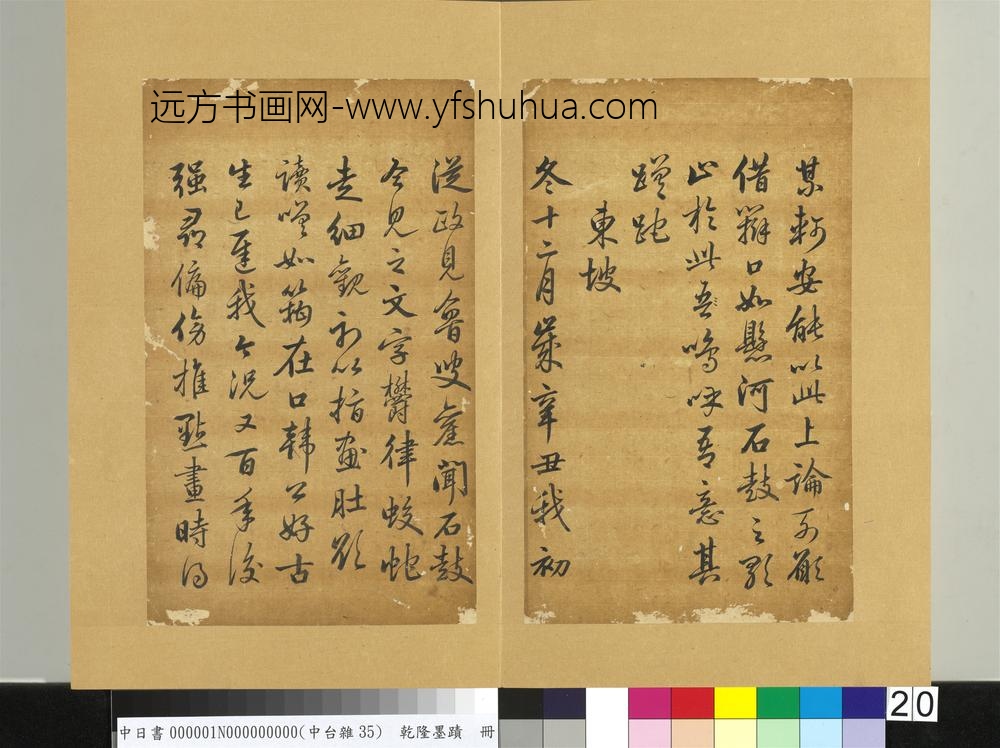 远方书画网-www.yfshuhua.com
某軻安能以此上論列願
借辯口如懸河石鼓之歌
止於此吾嗚呼吾意其
蹉跎
東坡
冬十二月歲辛丑我初
從政見魯叟舊聞石鼓
今見之文字鬱律蛟蛇
走細觀初以指畫肚欲
讀嗟如箝在口韓公好古
生已遲我今況又百年後
強尋偏傍推點畫時得
20
中日書000001N000000000(中台雜35) 乾隆墨蹟 冊